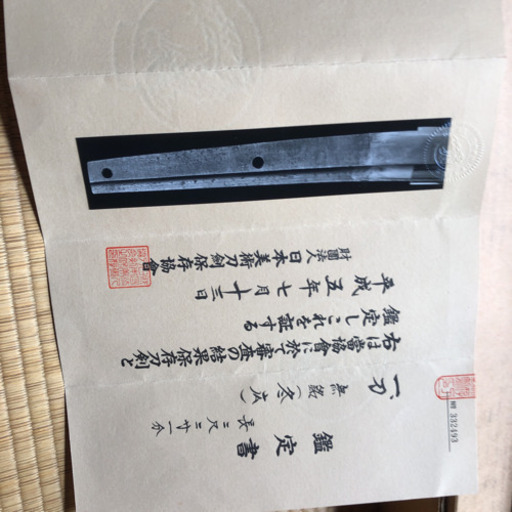 鑑定書
332493
一、刀 無銘
長二尺二寸一分
右は當協會に於て審査の結果保存刀剣と
鑑定しこれを証する
平成五年七月十三日
財團法人日本美術刀剣保存協會